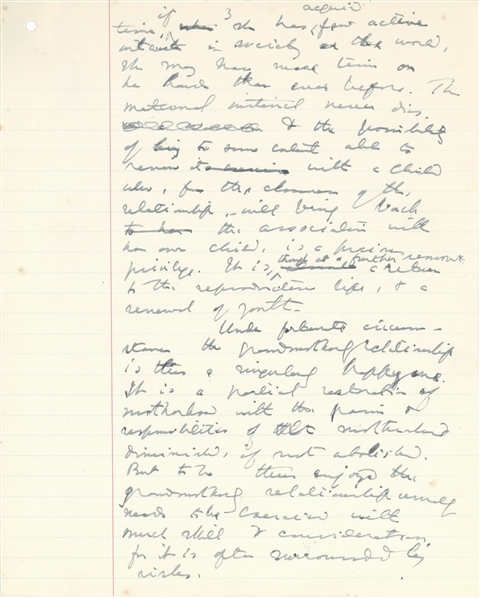 3 again
time, if she has few active
interests in society or the world,
she may have more time on
her hands than ever before. The
maternal interest never dies
& the possibility
of being to some extent able to
renew it with a child
who, for the closeness of the
relationship, will bring back
to her the association with
her own child, is a
privilege. It is, though at a further remove a return
to the reproductive life, & a
renewal of youth.
Under favourable circum-
stances the grandmotherly relationship
is thus a singularly happy one.
It is a partial restoration of
motherhood with the pains &
responsibilities of motherhood
diminished, if not abolished.
But to be thus enjoyed the
grandmotherly relationship
needs to be exercised with
much skill & consideration,
for it is often surrounded by
risks.